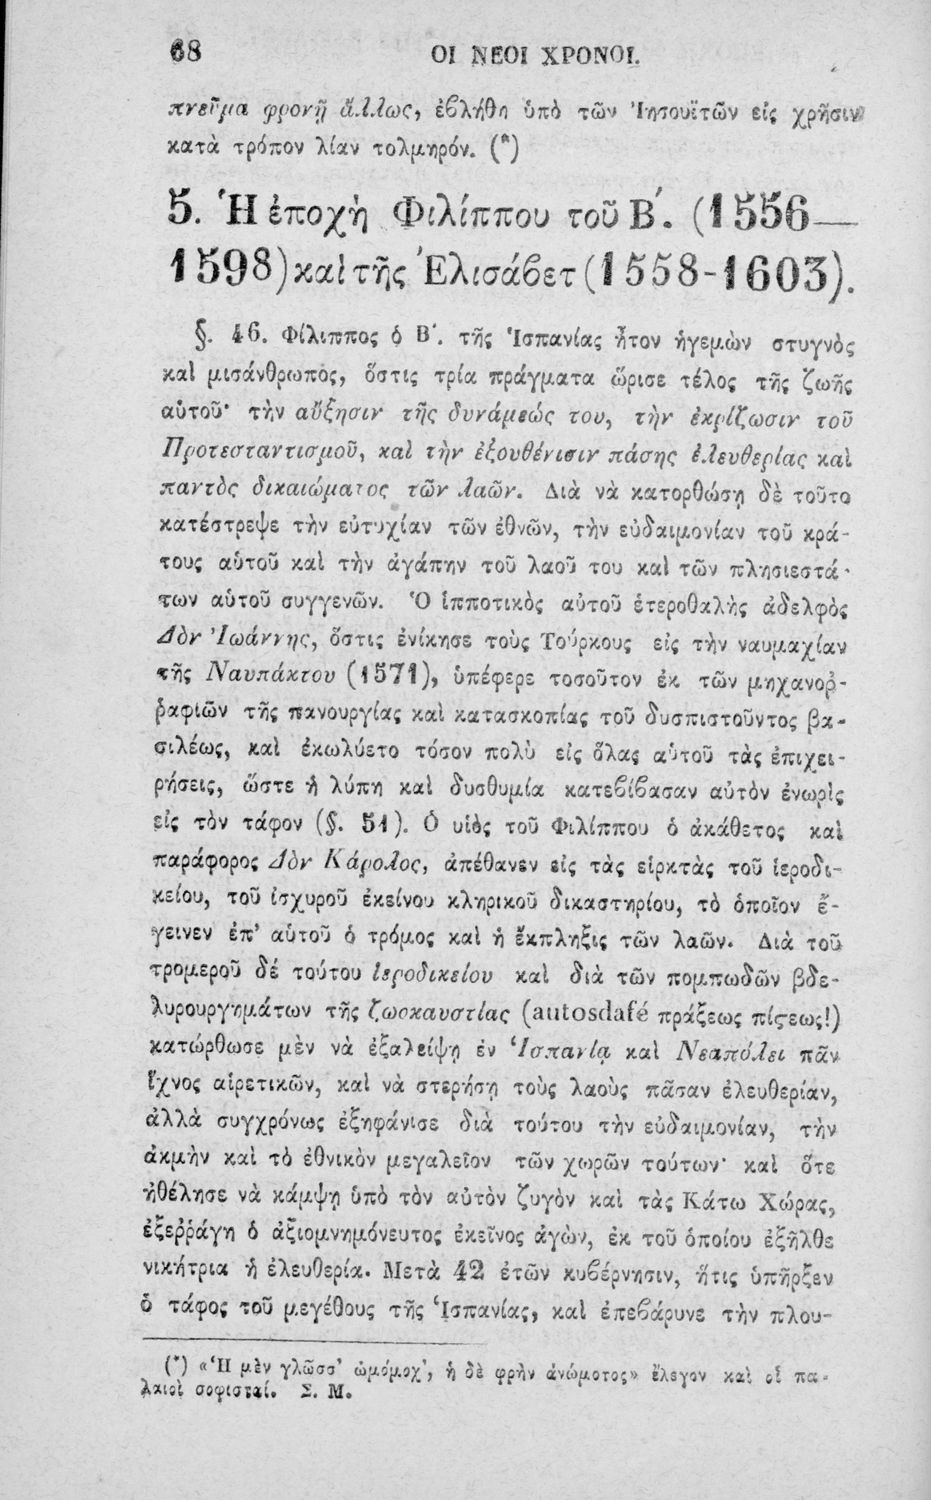 68 ΟΙ ΝΕΟΙ ΧΡΟΝΟΙ.
πνεῦμα φρονῇ ἄλλως, ἐβλήθη ὑπὸ τῶν Ἰησουϊτῶν εἰς χρῆσιν
κατὰ τρόπον λίαν τολμηρόν. (*)
5. Ἡ ἐποχὴ Φιλίππου τοῦ Β΄. (1556—
1598) καὶ τῆς Ἐλισάβετ (1558-1603).
§. 46. Φίλιππος ὁ Β΄. τῆς Ἱσπανίας ἦτον ἡγεμὼν στυγνὸς
καὶ μισάνθρωπος, ὅστις τρία πράγματα ὥρισε τέλος τῆς ζωῆς
αὑτοῦ· τὴν αὔξησιν τῆς δυνάμεώς του, τὴν ἐκρίζωσιν τοῦ
Προτεσταντισμοῦ, καὶ τὴν ἐξουθένισιν πάσης ἐλευθερίας καὶ
παντὸς δικαιώματος τῶν λαῶν. Διὰ νὰ κατορθώσῃ δὲ τοῦτο
κατέστρεψε τὴν εὐτυχίαν τῶν ἐθνῶν, τὴν εὐδαιμονίαν τοῦ κρά-
τους αὑτοῦ καὶ τὴν ἀγάπην τοῦ λαοῦ του καὶ τῶν πλησιεστά-
των αὑτοῦ συγγενῶν. Ὁ ἱπποτικὸς αὐτοῦ ἑτεροθαλὴς ἀδελφὸς
Δὸν Ἰωάννης, ὅστις ἐνίκησε τοὺς Τούρκους εἰς τὴν ναυμαχίαν
τῆς Ναυπάκτου (1571), ὑπέφερε τοσοῦτον ἐκ τῶν μηχανοῤ-
ῥαφιῶν τῆς πανουργίας καὶ κατασκοπίας τοῦ δυσπιστοῦντος βα-
σιλέως, καὶ ἐκωλύετο τόσον πολὺ εἰς ὅλας αὑτοῦ τὰς ἐπιχει-
ρήσεις, ὥστε ἡ λύπη καὶ δυσθυμία κατεβίβασαν αὐτὸν ἐνωρὶς
εἰς τὸν τάφον (§. 51). Ὁ υἱὸς τοῦ Φιλίππου ὁ ἀκάθετος καὶ
παράφορος Δὸν Κάρολος, ἀπέθανεν εἰς τὰς εἱρκτὰς τοῦ ἱεροδι-
κείου, τοῦ ἰσχυροῦ ἐκείνου κληρικοῦ δικαστηρίου, τὸ ὁποῖον ἔ-
γεινεν ἐπ’ αὑτοῦ ὁ τρόμος καὶ ἡ ἔκπληξις τῶν λαῶν. Διὰ τοῦ
τρομεροῦ δέ τούτου ἱεροδικείου καὶ διὰ τῶν πομπωδῶν βδε-
λυρουργημάτων τῆς ζωοκαυστίας (autosdafé πράξεως πίϛεως!)
κατώρθωσε μὲν νὰ ἐξαλείψῃ ἐν Ἱσπανίᾳ καὶ Νεαπόλει πᾶν
ἴχνος αἱρετικῶν, καὶ νὰ στερήσῃ τοὺς λαοὺς πᾶσαν ἐλευθερίαν,
ἀλλὰ συγχρόνως ἐξηφάνισε διὰ τούτου τὴν εὐδαιμονίαν, τὴν
ἀκμὴν καὶ τὸ ἐθνικὸν μεγαλεῖον τῶν χωρῶν τούτων· καὶ ὅτε
ἠθέλησε νὰ κάμψῃ ὑπὸ τὸν αὐτὸν ζυγὸν καὶ τὰς Κάτω Χώρας,
ἐξεῤῥάγη ὁ ἀξιομνημόνευτος ἐκεῖνος ἀγὼν, ἐκ τοῦ ὁποίου ἐξῆλθε
νικήτρια ἡ ἐλευθερία. Μετὰ 42 ἐτῶν κυβέρνησιν, ἥτις ὑπῆρξεν
ὁ τάφος τοῦ μεγέθους τῆς Ἱσπανίας, καὶ ἐπεβάρυνε τὴν πλου-
(*) «Ἡ μὲν γλῶσσ’ ὠμόμοχ’, ἡ δὲ φρὴν ἀνώμοτος» ἔλεγον καὶ οἱ πα-
λαιοὶ σοφισταί. Σ. Μ.